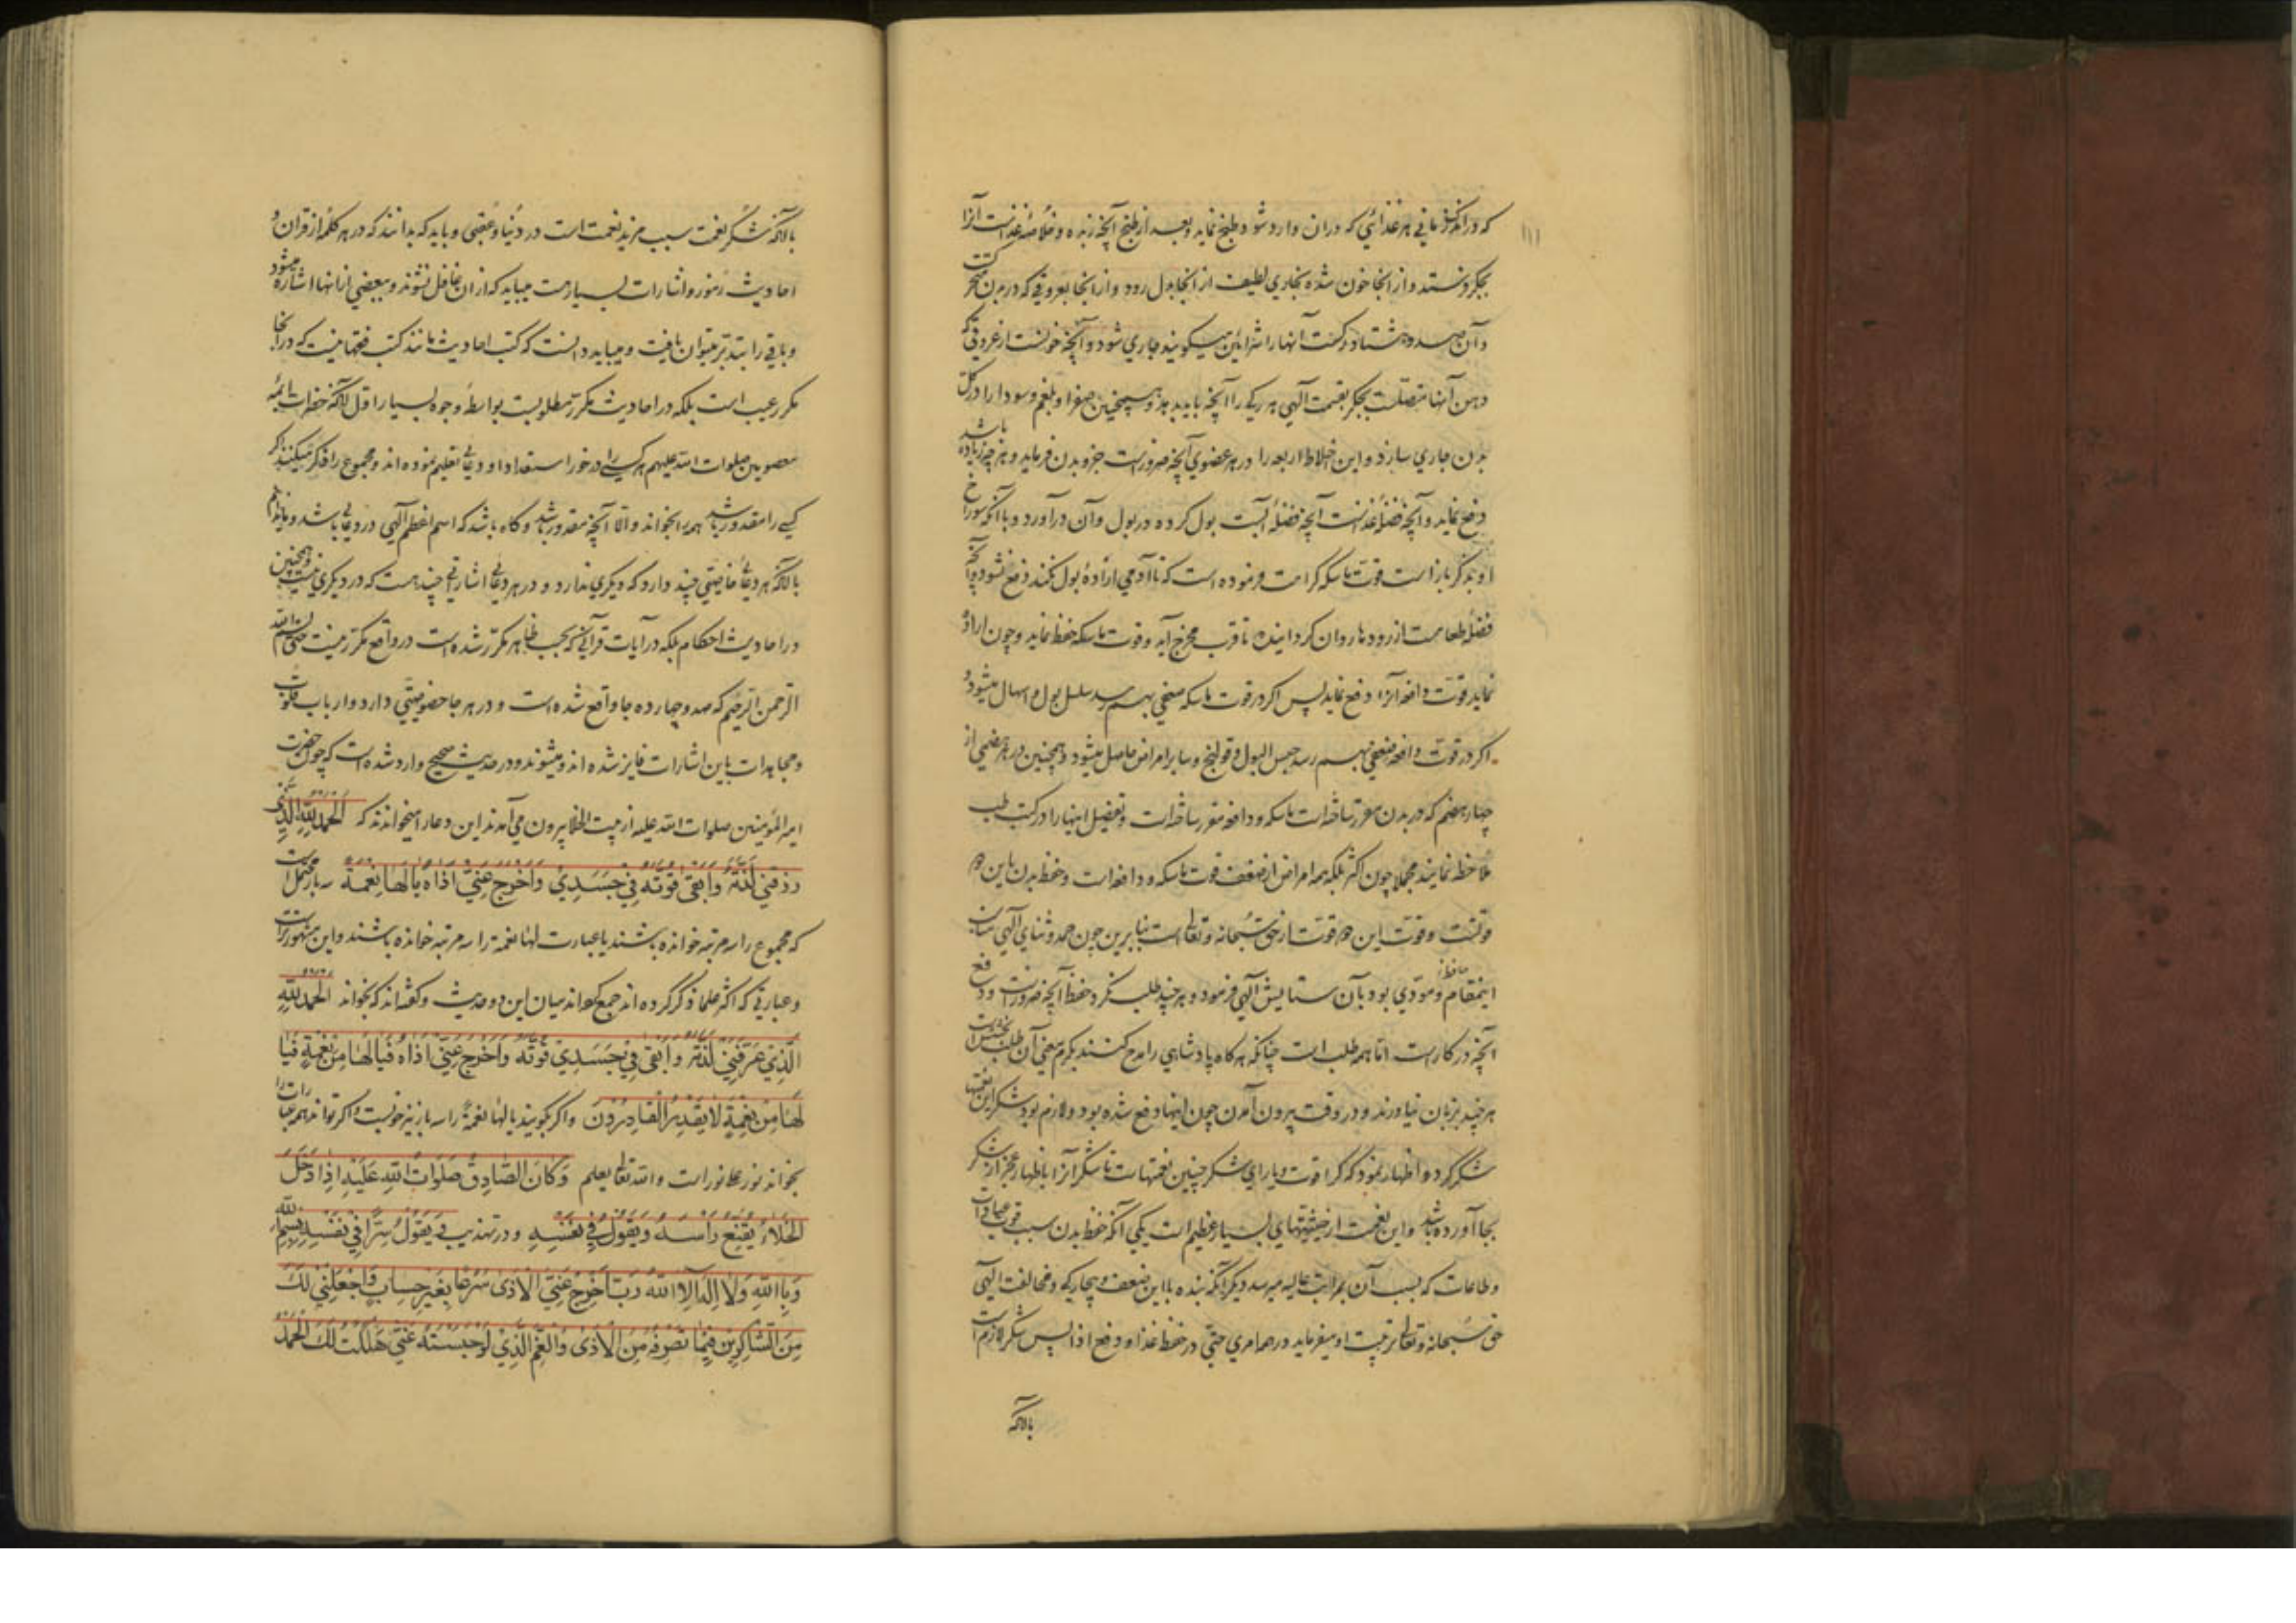 که در اندک زمانی هر غذائی که در ان وارد شود طبخ نماید و بعد از طبخ آنچه زبده و خلاصهٔ غذاست آنرا
بجکر فرستد و از انجا خون شده بخاری لطیف از انجا بدل رود و از انجا بعروقی که در بدن متحرکست
و آن سیصد و هشتاد رکست آنها را شرائین میکویند جاری شود و آنچه خونست از عروقی که
دهن آنها متصلست بجکر بقسمت آلهی هر یکی را آنچه باید بدهد و همچنین صفرا و بلغم و سودا را در کل
بدن جاری سازد و این اخلاط اربعه را در هر عضوی آنچه ضرورست جزو بدن فرماید و هر چه زیاده باشد
دفع نماید و آنچه فضلهٔ غذاست آنچه فضلهٔ آبست بول کرده در بول دان درآورد و با آنکه سوراخ
او بذکر بازاست قوت ماسکه کرامت فرموده است که تا آدمی ارادهٔ بول نکند دفع نشود و آنچه
فضلهٔ طعامست از رودها روان کردانیده تا قرب مخرج آید و قوت ماسکه حفظ نماید و چون ارادهٔ
نماید قوت دافعه آنرا دفع نماید پس اکر در قوت ماسکه ضعفی بهم رسد سلسل بول و اسهال میشود و
اکر در قوت دافعه ضعفی بهم رسد حبس البول و قولنج و سایر امراض حاصل میشود و همچنین در هر هضمی از
چهار هضم که در بدن مقرر ساخته است ماسکه و دافعه مقرر ساخته است و تفصیل اینها را در کتب طب
ملاحظه نمایند مجملا چون اکثر بلکه همه امراض از ضعف قوت ماسکه و دافعه است و حفظ بدن باین دو
قوتست و قوت این دو قوت از حق سبحانه و تعالی است بنابرین چون حمد و ثنای آلهی مناسب
اینمقام و مودی بود بآن ستایش آلهی فرمود و هر چند طلب نکرد حفظ آنچه ضرورست و دفع
آنچه در کارست اما همه طلب است چنانکه هر کاه پادشاهی را مدح کنند بکرم معنی آن طلب بخشش است
هر چند بزبان نیاورند و در وقت بیرون آمدن چون اینها دفع شده بود و لازم بود شکر این نعمتها
شکر کرد و اظهار نمود که کرا قوت و یارای شکر چنین نعمتهاست تا شکر آنرا با ظهار عجز از شکر
بجا آورده باشد و این نعمت از حیثیتهای بسیار عظیم است یکی آنکه حفظ بدن سبب قوت عبادات
و طاعات که بسبب آن بمراتب عالیه میرسد دیکر آنکه بنده با این ضعف و بیچارکی و مخالفت الهی
حق سبحانه و تعالی تربیت او میفرماید در همه امری حتی در حفظ غذا و دفع اذا پس شکر لازم است
باآنکه
باآنکه شکر نعمت سبب مزید نعمت است در دنیا و عقبی و باید که بدانند که در هر کلمهٔ از قران و
احادیث رموز و اشارات بسیارست میباید که از ان غافل نشوند و ببعضی از انها اشاره میشود
و باقی را بتدبر میتوان یافت و میباید دانست که کتب احادیث مانند کتب فقها نیست که در انجا
مکرر عیب است بلکه در احادیث مکرر مطلوبست بواسطهٔ وجوه بسیار اول آنکه حضرات ائمه
معصومین صلوات الله علیهم هر کسی را در خور استعداد او دعائی تعلیم نموده اند و مجموع را ذکر میکنند که اکر
کسی را مقدور باشد همه را بخواند و الا آنچه مقدور باشد و کاه باشد که اسم اعظم آلهی در دعائی باشد و
باآنکه هر دعائی خاصیتی چند دارد که دیکری ندارد و در هر دعائی اشاراتی چند هست که در دیکری نیست و همچنین
در احادیث احکام بلکه در آیات قرآنی که بحسب ظاهر مکرر شده است در واقع مکرر نیست حتی بسم الله
الرحمن الرحیم که صد و چهارده جا واقع شده است و در هر جا خصوصیتی دارد و ارباب قلوب
و مجاهدات باین اشارات فایز شده اند و میشوند و در حدیث صحیح وارد شده است که چون حضرت
امیر المؤمنین صلوات الله علیه از بیت الخلا بیرون می آمدند این دعا را میخواندند که الحمد لله الذی
رزقنی لذته وابقی قوته فی جسدی واخرج عنی اذاه یالها نعمة سه بار محتمل است
که مجموع را سه مرتبه خوانده باشند یا عبارت لها نعمة را سه مرتبه خوانده باشند و این مشهورتر است
و عبارتی که اکثر علما ذکر کرده اند جمع کرده اند میان این دو حدیث و کفته اند که بخواند الحمد لله
الذی عرفنی لذته وابقی فی جسدی قوته واخرج عنی اذاه فیا لها من نعمة فیا
لها من نعمة لا یقدر القادرون و اکر بکویند یا لها نعمة را سه بار نیز خوبست و اکر تواند همه عبارات را
بخواند نور علی نور است و الله تعالی یعلم وکان الصادق صلوات الله علیه اذا دخل
الخلاء یقنع رأسه ویقول فی نفسه و در تهذیب ویقول سرا فی نفسه بسم الله
وبالله ولا اله الا الله رب اخرج عنی الاذی سرحا بغیر حساب واجعلنی لک
من الشاکرین فیما تصرفه من الاذی والغم الذی لو حبسته عنی هلکت لک الحمد